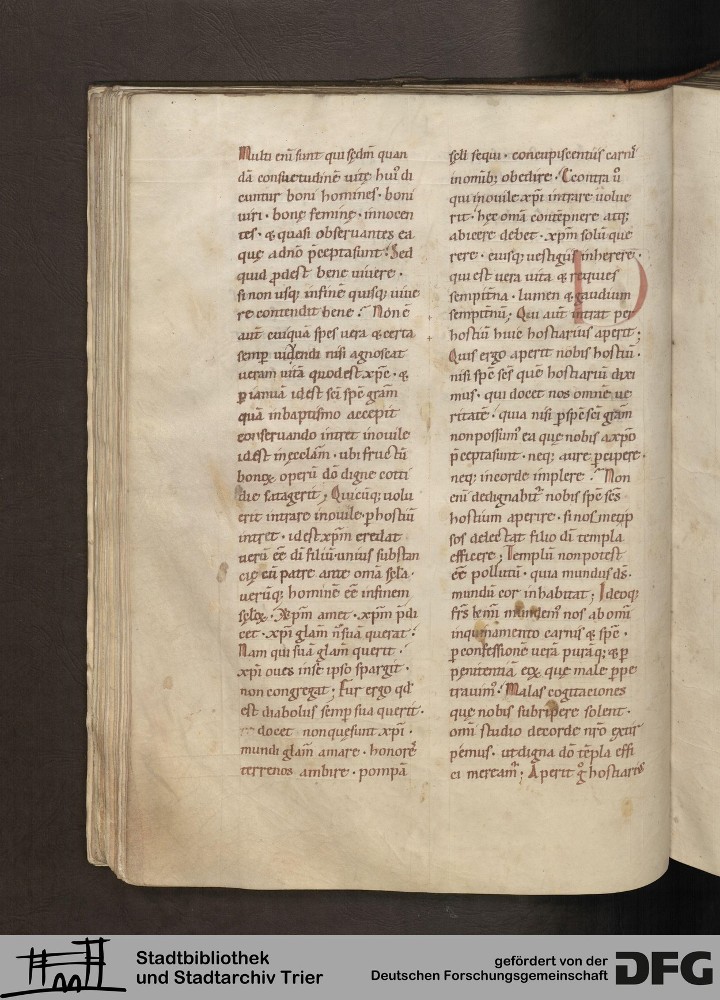 Multi eni sunt qui sedm quan
dā consuetudinē uitę huiꝰ di
cuntur boni homines · boni
uiri · bonę feminę · innocen
tes · & quasi obseruantes ea
quę adno p̄ceptasunt · Sed
quid ꝓdest bene uiuere ·
si non usq; infinē quisq; uiue
re contendit bene ? Non ē
aut̄ cuiquā spes uera & certa
semꝑ uidendi nisi agnoscat
ueram uitā quodest xp̄c · &
ꝑ ianuā idest sc̄i sp̄c grām
quā inbaptismo accepit
conseruando intret inouile
idest inęcclam̄ · ubi fructū
bonoꝝ operū dō digne cotti
die satagerit ; Quicūq; uolu
erit intrare inouile · ꝑ hostiū
intret · idest xp̄m credat
uerū ee di filiū · unius substan
cię cū patre ante om̄a sc̄la ·
uerūq; hominē ee infinem
sc̄loꝝ · xp̄m amet · xp̄m p̄di
cet · xp̄i glām n̄ suā querat :
Nam qui suā glām querit ·
xp̄i oues inse ipso spargit ·
non congregat ; Fur ergo qd̄
est diabolus semꝑ sua querit ·
docet non quesunt xp̄i ·
mundi glām amare · honorē
terrenos ambire · pompā
sc̄li sequi · concupiscentiis carnī
inomīb; obedire · Econtra ū
qui inouile xp̄i intrare uolue
rit · hęc om̄a contēpnere atq;
abicere debet · xp̄m solū que
rere · eiusq; uestigiis inherere ·
qui est uera uita & requies
sempit̄na · lumen & gaudium
sempit̄nū ; Qui aut̄ intrat per
hostiū huic hostiarius aperit ;
Quis ergo aperit nobis hostiū ·
nisi sp̄c sc̄s quē hostiariū dixi
mus · qui docet nos omnē ue
ritatē · quia nisi ꝑ sp̄c sc̄i grām
non possumꝰ ea que nobis axp̄o
p̄ceptasunt · neq; aure ꝑcipere ·
neq; incorde implere ? Non
eni dedignabit̄ nobis sp̄c sc̄s
hostium aperire · si nosmetip
sos delectat filio di templa
efficere ; Templū non potest
ee pollutū · quia mundus ds̄ ·
mundū cor inhabitat ; Ideoq;
frs̄ kmi mundemꝰ nos ab omi
inquinamento carnis & sp̄c ·
ꝑ confessionē uerā purāq; & ꝑ
penitentiā eoꝝ quę male ꝑpe
trauimꝰ · Malas cogitaciones
quę nobis subripere solent ·
omi studio decorde nr̄o extir
pemus · ut digna dō tēpla effi
ci meream̄ ; Aperit g̊ hostiariꝰ
Stadtbibliothek
und Stadtarchiv Trier
gefördert von der
Deutschen Forschungsgemeinschaft
DFG